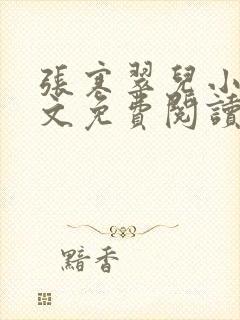 張寒翠兒小
文免費閱讀
黯香